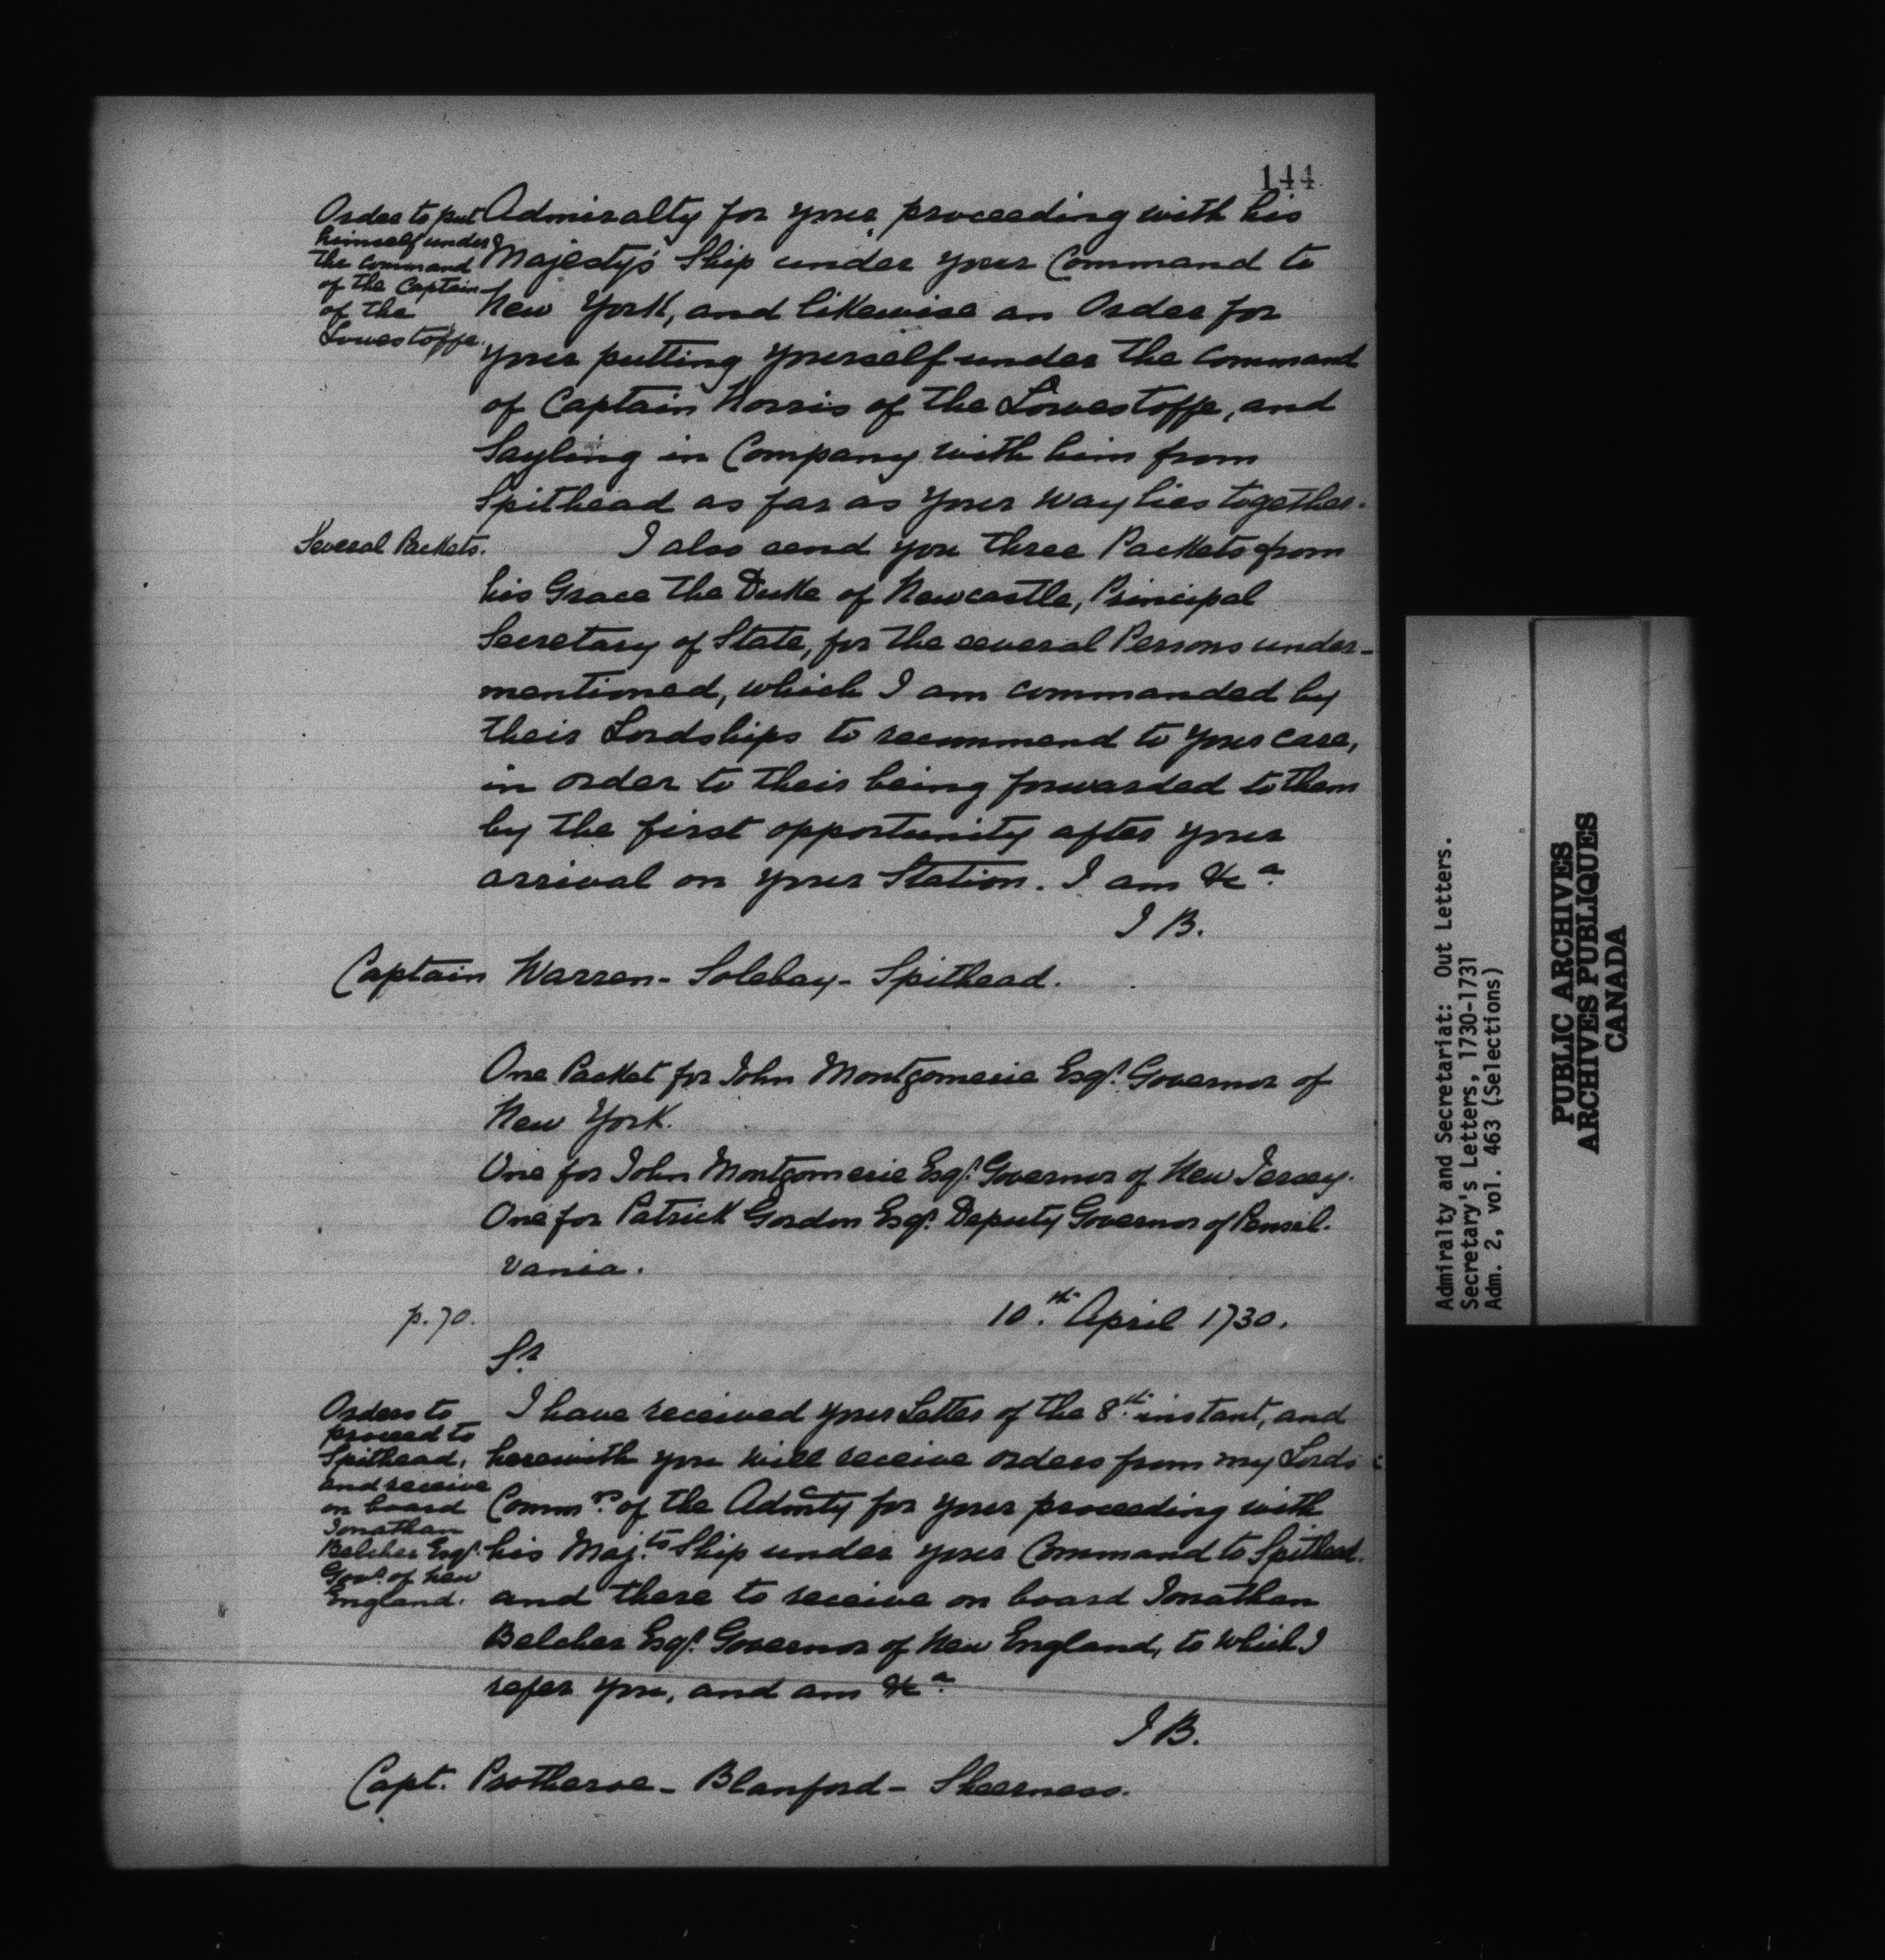 144
Order to put
himself under
the command
of the Captain
of the
Lowestoffe.
Admiralty for your proceeding with his
Majesty's Ship under your Command to
New York, and likewise an Order for
your putting yourself under the command
of Captain Norris of the Lowestoffe, and
Sayling in Company with him from
Spithead as far as your way lies together.
Several Packets.
I also send you three Packets from
his Grace the Duke of Newcastle, Principal
Secretary of State, for the several Persons under-
mentioned, which I am commanded by
their Lordships to recommend to your care,
in order to their being forwarded to them
by the first opportunity after your
arrival on your Station. I am &c a.
I B.
Captain Warren - Solebay - Spithead.
One Packet for John Montgomerie Esqr. Governor of
New York.
One for John Montgomerie Esqr. Governor of New Jersey.
One for Patrick Gordon Esqr. Deputy Governor of Pensil.
vania.
p. 70.
10.th April 1730.
Sr.
Orders to
proceed to
Spithead,
and receive
on board
Jonathan
Belcher Esqr.
Govr. of New
England.
I have received your Letter of the 8.th instant, and
herewith you will receive orders from my Lords
Commrs. of the Admty for your proceeding with
his Maj.ts Ship under your Command to Spithead.
and there to receive on board Jonathan
Belcher Esqr. Governor of New England, to which I
refer you, and am &c a.
I B.
Capt. Protheroe - Blanford - Sheerness.
Admiralty and Secretariat: Out Letters.
Secretary's Letters, 1730-1731
Adm. 2, vol. 463 (Selections)
PUBLIC ARCHIVES
ARCHIVES PUBLIQUES
CANADA